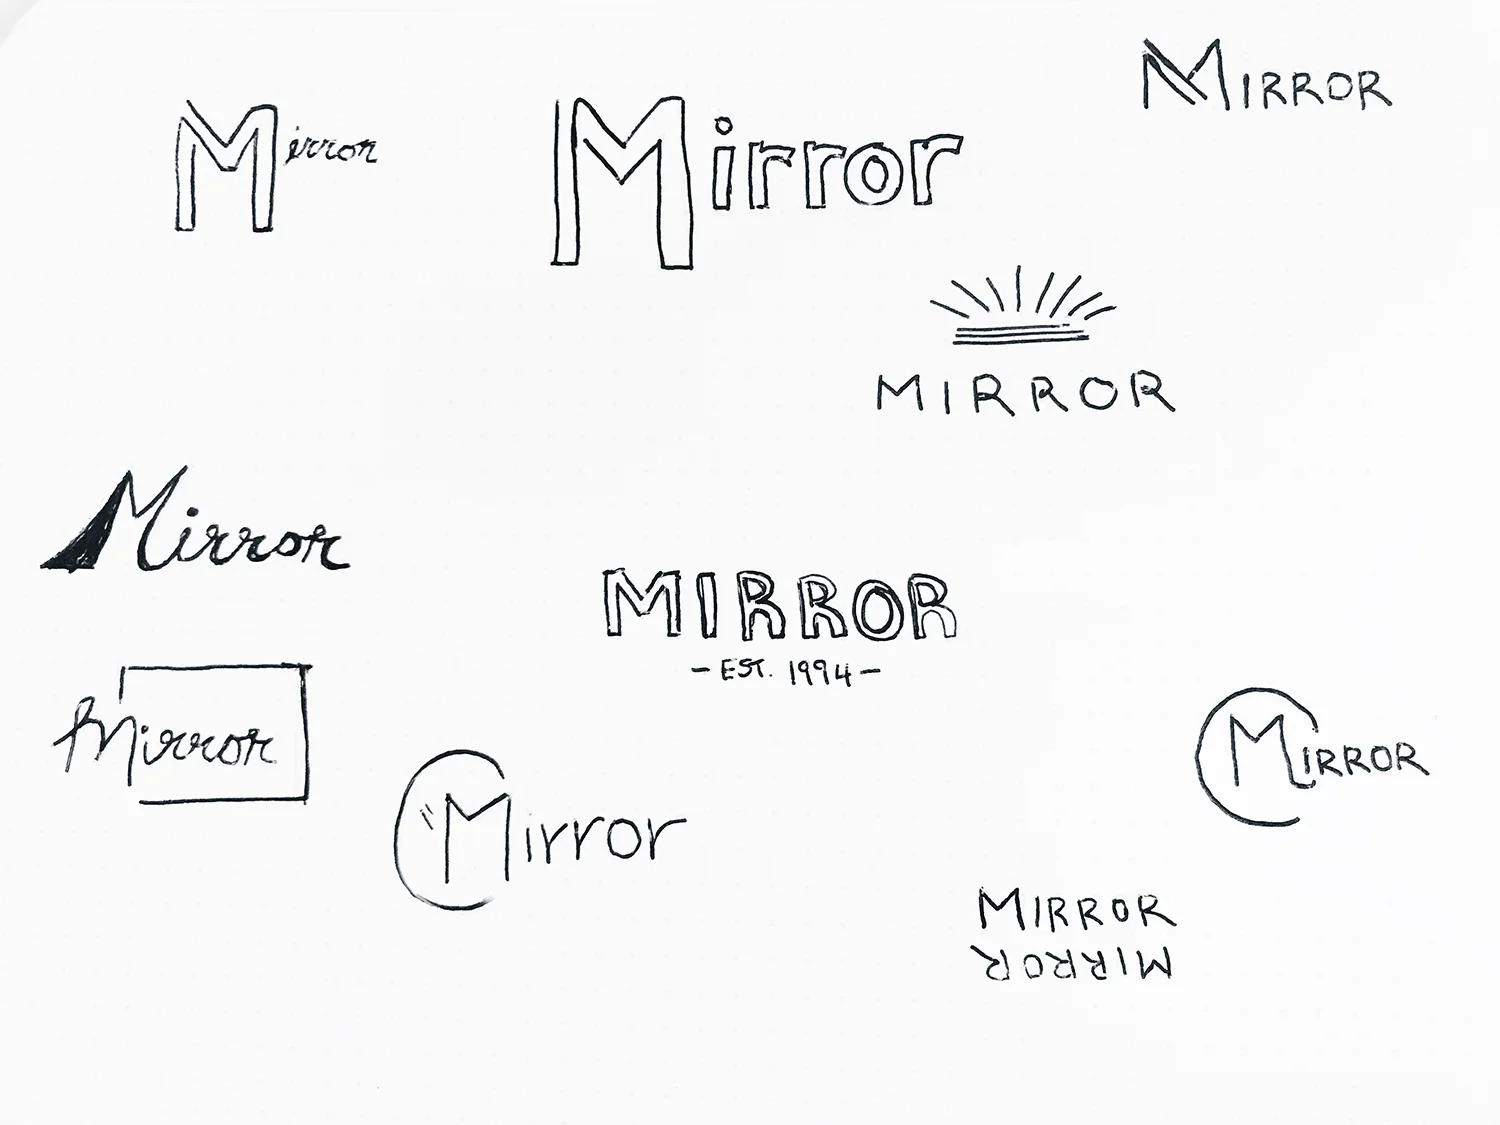 MIRROR
Mirror
Mirror
MIRROR
Mirror
MIRROR
- EST. 1994 -
Mirror
MIRROR
Mirror
MIRROR
MIRROR